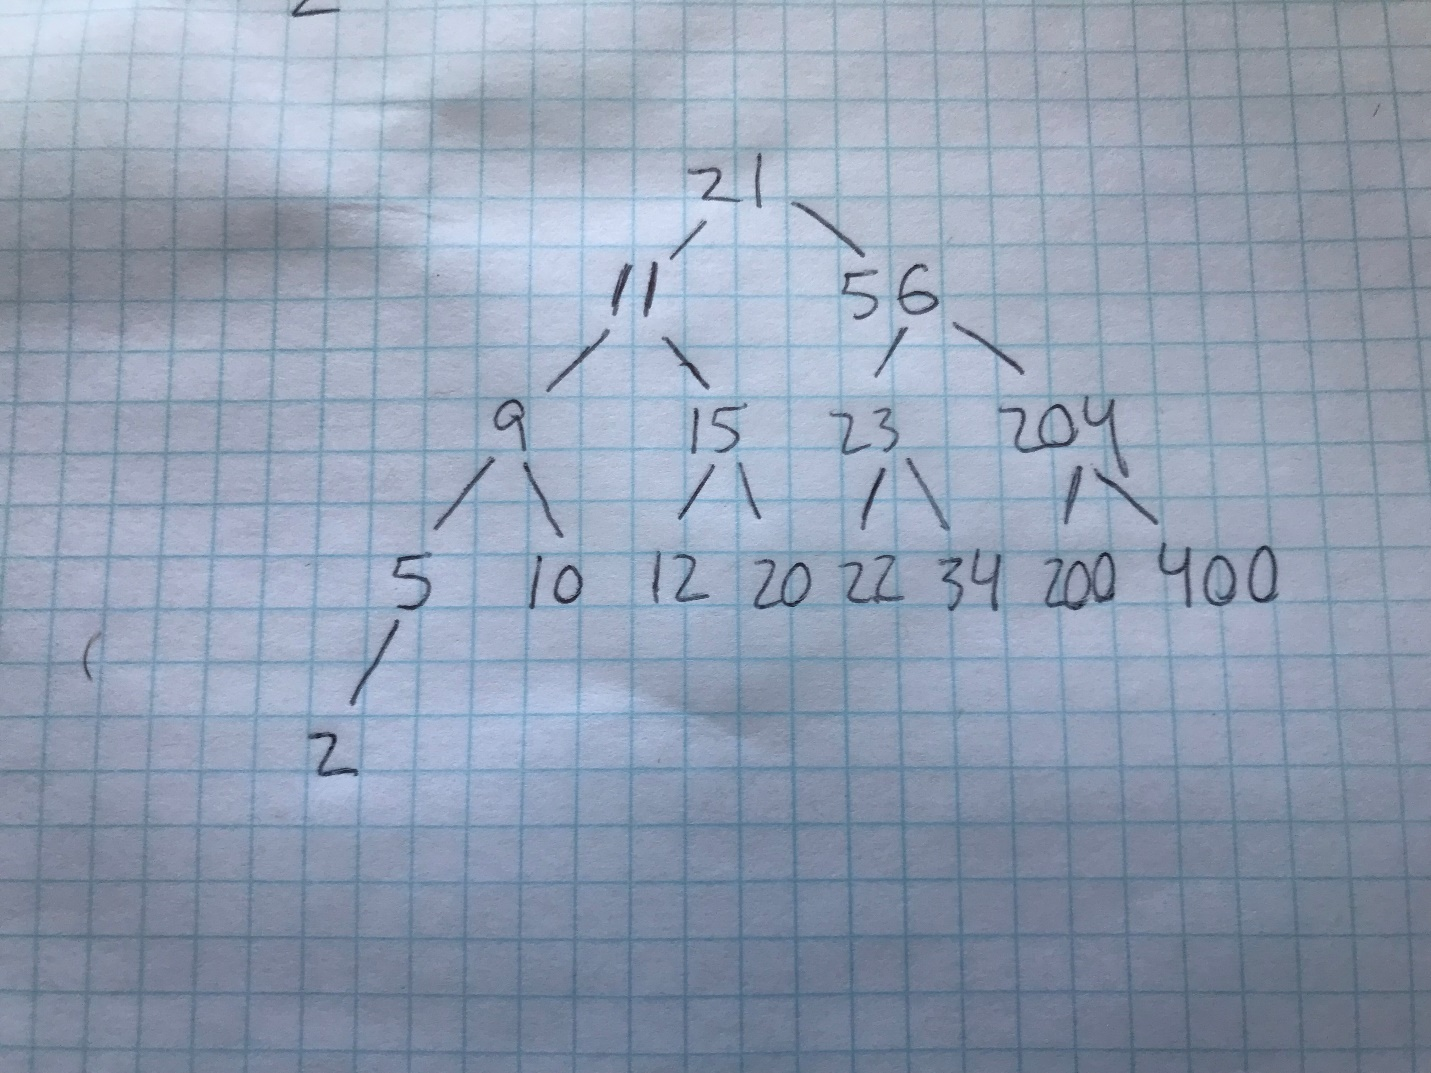 21
11 56
9 15 23 204
5 10 12 20 22 34 200 400
2